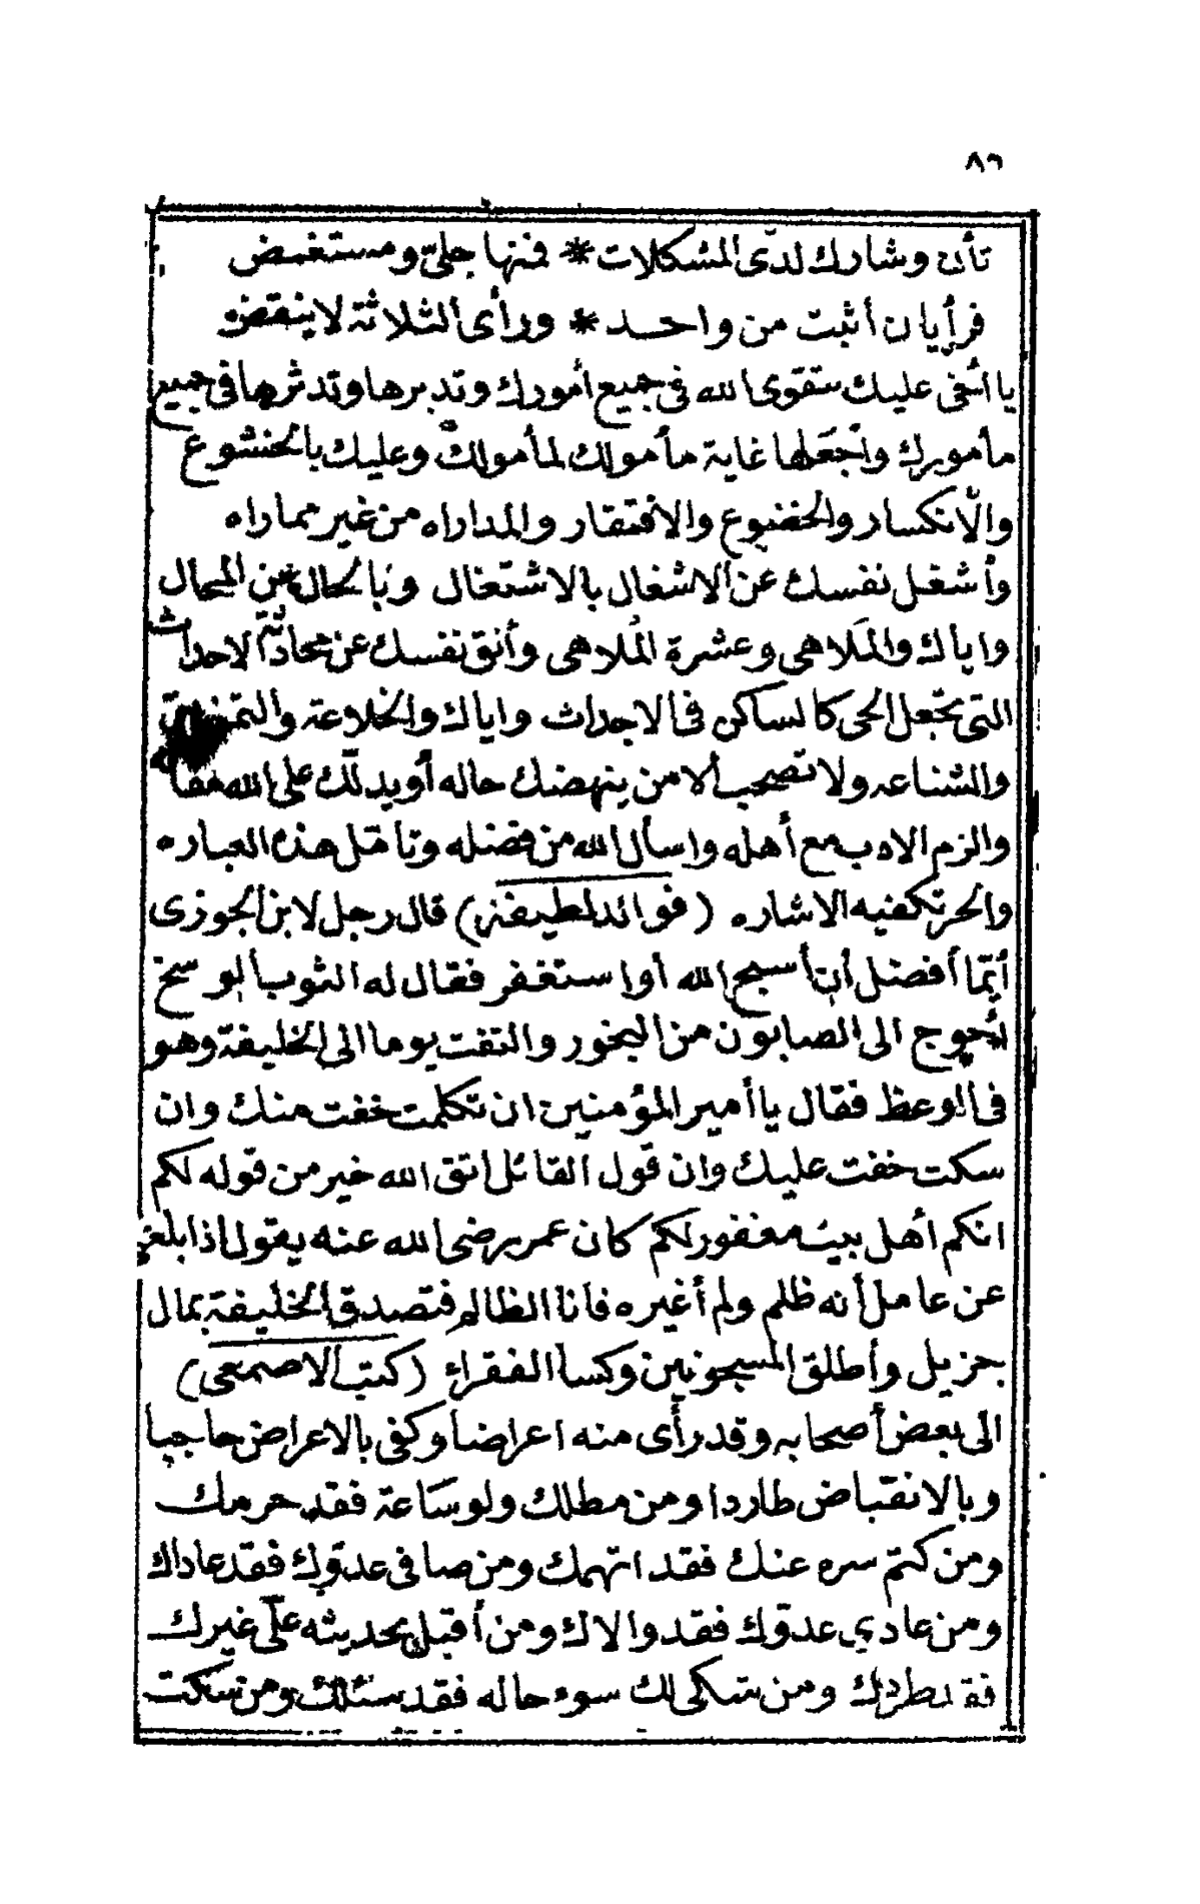 ٨٦
تأن وشارك لدى المشكلات * فمنها جليّ ومستغمض
فرأيان أثبت من واحد * ورأى الثلاثة لا ينقض
يا أخى عليك بتقوى الله فى جميع أمورك وتدبرها وتدثرها فى جميع
مأمورك واجعلها غاية مأمولك لمأمولك وعليك بالخشوع
والانكسار والخضوع والافتقار والمداراه من غير مماراه
وأشغل نفسك عن الاشغال بالاشتغال وبالحال عن المحال
واياك والملاهى وعشرة الملاهى وأنق نفسك عن محادثة الاحداث
التى تجعل الحى كالساكن فى الاجداث واياك والخلاعه
والشناعه ولا تصحب الا من ينهضك حاله أو يدلك على الله مقاله
والزم الادب مع أهله واسأل الله من فضله وتأمل هذه العباره
والحر تكفيه الاشاره (فوائد لطيفة) قال رجل لابن الجوزى
أيّما أفضل أن أسبح الله أو استغفر فقال له الثوب الوسخ
أحوج الى الصابون من البخور والتفت يوما الى الخليفة وهو
فى الوعظ فقال يا أمير المؤمنين ان تكلمت خفت منك وان
سكت خفت عليك وان قول القائل اتق الله خير من قوله لكم
انكم أهل بيت مغفور لكم كان عمر رضى الله عنه يقول اذا بلغنى
عن عامل أنه ظلم ولم أغيره فأنا الظالم فتصدق الخليفة بمال
جزيل وأطلق المسجونين وكسا الفقراء (كتب الاصمعى)
الى بعض أصحابه وقد رأى منه اعراضا وكفى بالاعراض حاجبا
وبالانقباض طاردا ومن مطلك ولو ساعة فقد حرمك
ومن كتم سره عنك فقد اتهمك ومن صافى عدوك فقد عاداك
ومن عادى عدوك فقد والاك ومن أقبل بحديثه على غيرك
فقد طردك ومن شكى لك سوء حاله فقد سئلك ومن سكت